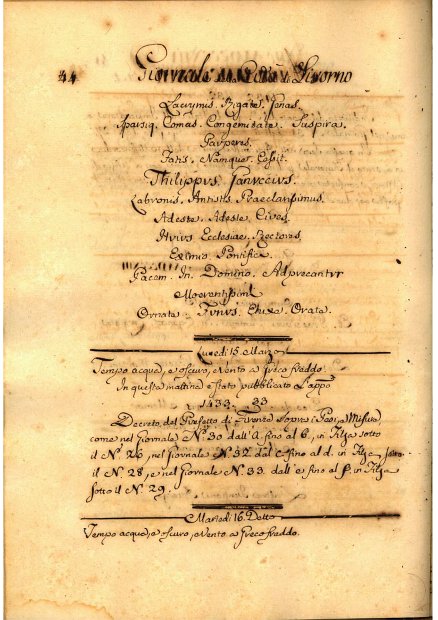 44 Giornale della Città di Livorno
Lacrymis. Rigate. Genas.
Sparsiq. Comas. Congeminate. Suspira.
Pauperes.
Fatis. Namque. Cessit.
Philippus. Ganuccius.
Labronis. Antistes. Praeclarissimus.
Adeste. Adeste. Cives.
Huius Ecclesiae. Rectores.
Eximio. Pontifici.
Pacem. In. Domino. Adprecantur
Moerentissimi
Ornate. Funus. Enixe. Orate.
Lunedì 15. Marzo
Tempo acqua, e oscuro, e vento a Greco freddo.
In questa mattina è stato pubblicato l'appo
1433. 33
Decreto del Prefetto di Firenze sopra i Pesi, e Misure,
come nel Giornale N.º 30 dall' a fino al b, in Filza sotto
il N.º 26, nel Giornale N.º 32. dal c fino al d. in Filza sotto
il N.º 28, e nel Giornale N.º 33. dall' e fino al f. in Filza
sotto il N.º 29.
Martedì 16. Detto
Tempo acqua, e oscuro, e vento a Greco freddo.